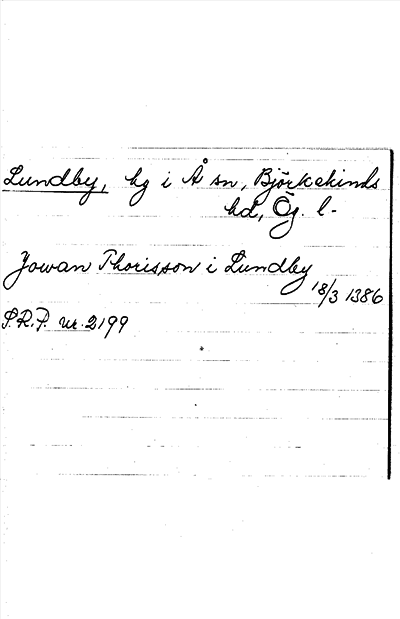 Lundby, hg i Å sn, Björkekinds
hd, Ög. l.
Jowan Thorisson i Lundby
18/3 1386
S.R.P. nr. 2199